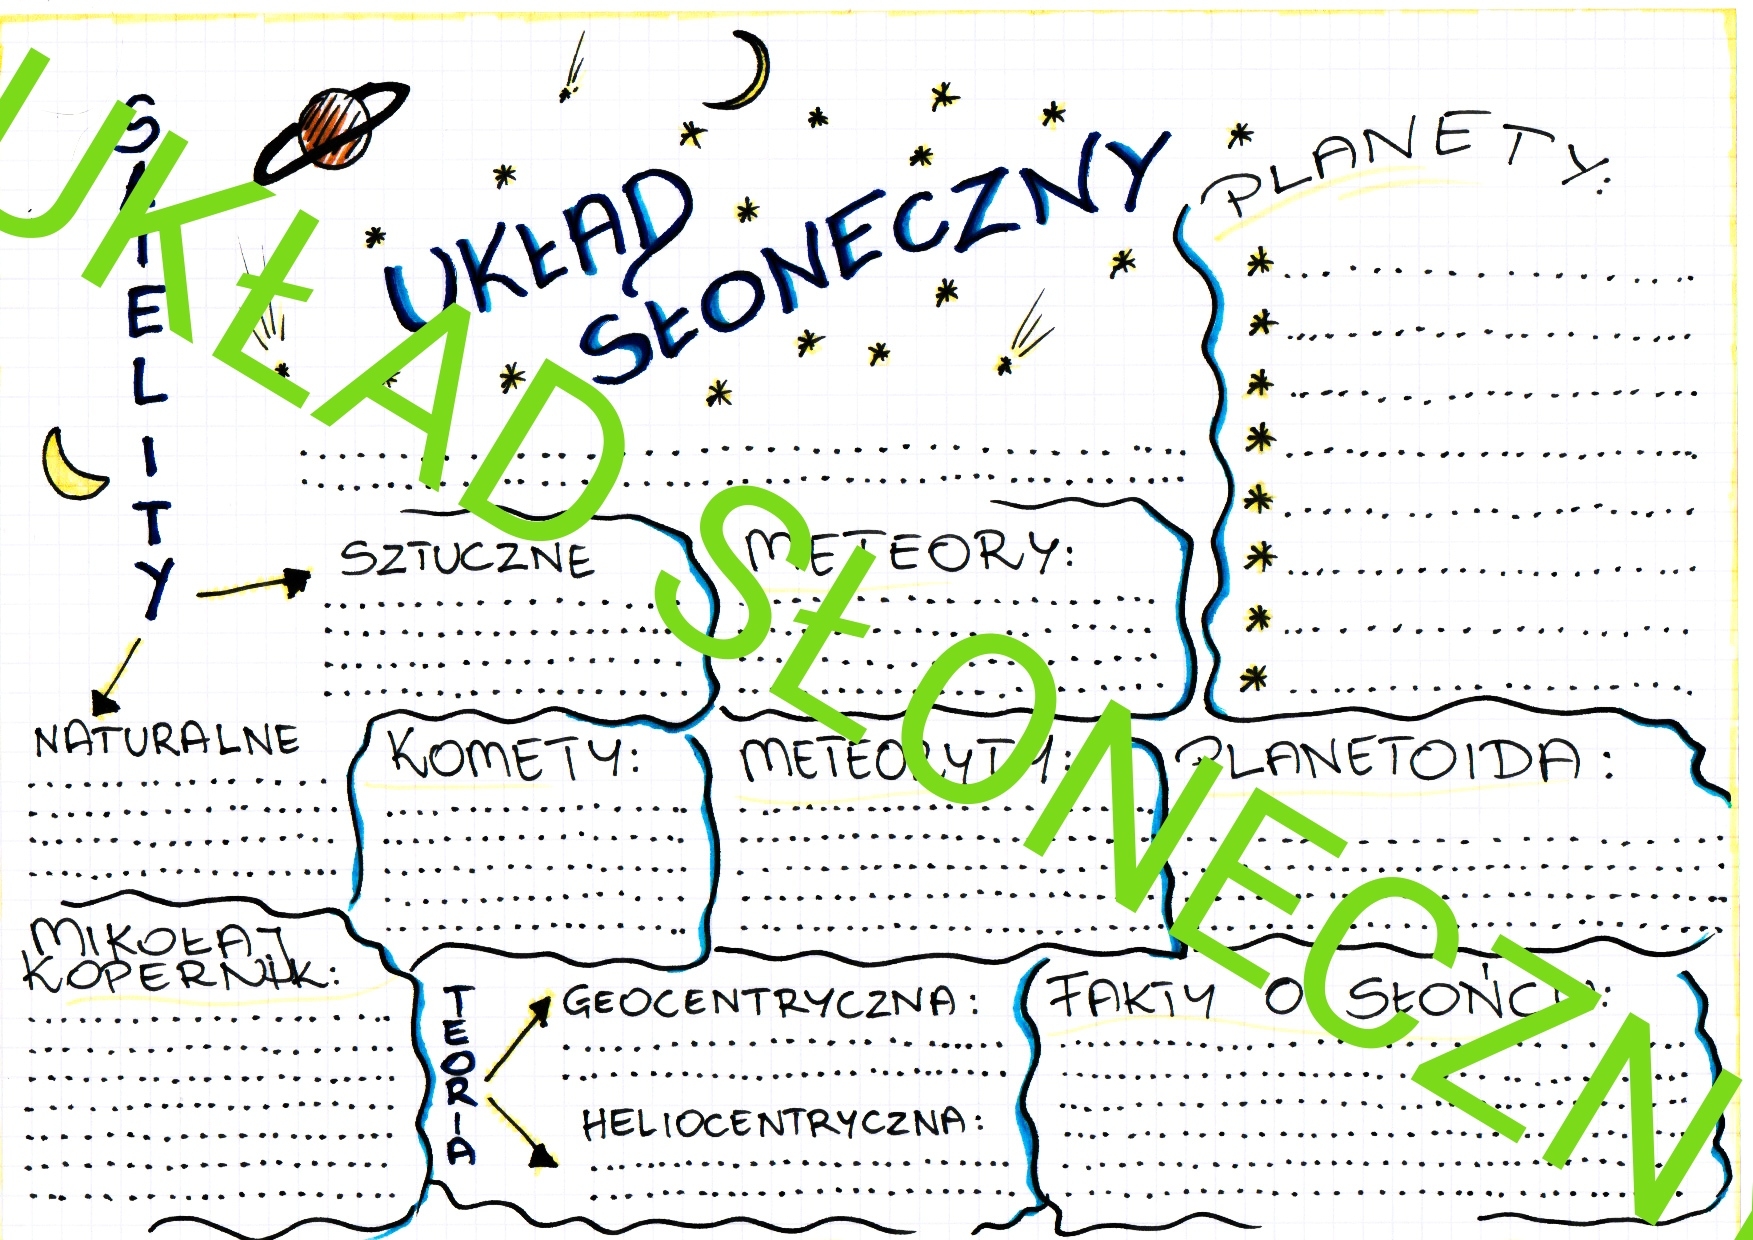 UKŁAD SŁONECZN
SATELITY
UKŁAD
SŁONECZNY
PLANETY:
SZTUCZNE
METEORY:
NATURALNE
KOMETY:
METEORYTY:
PLANETOIDA:
MIKOŁAJ
KOPERNIK:
TEORIA
GEOCENTRYCZNA:
HELIOCENTRYCZNA:
FAKTY O SŁOŃCU: